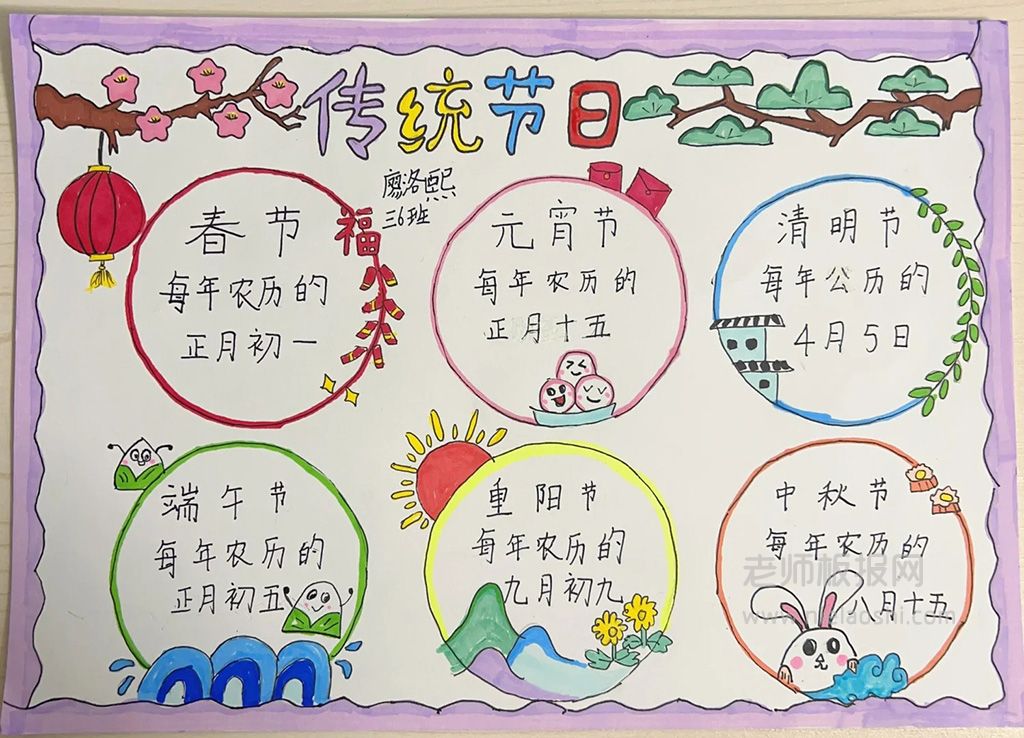 传统节日
廖洛熙
三6班
春节
每年农历的
正月初一
福
元宵节
每年农历的
正月十五
清明节
每年公历的
4月5日
端午节
每年农历的
正月初五
重阳节
每年农历的
九月初九
中秋节
每年农历的
八月十五
老师板报网